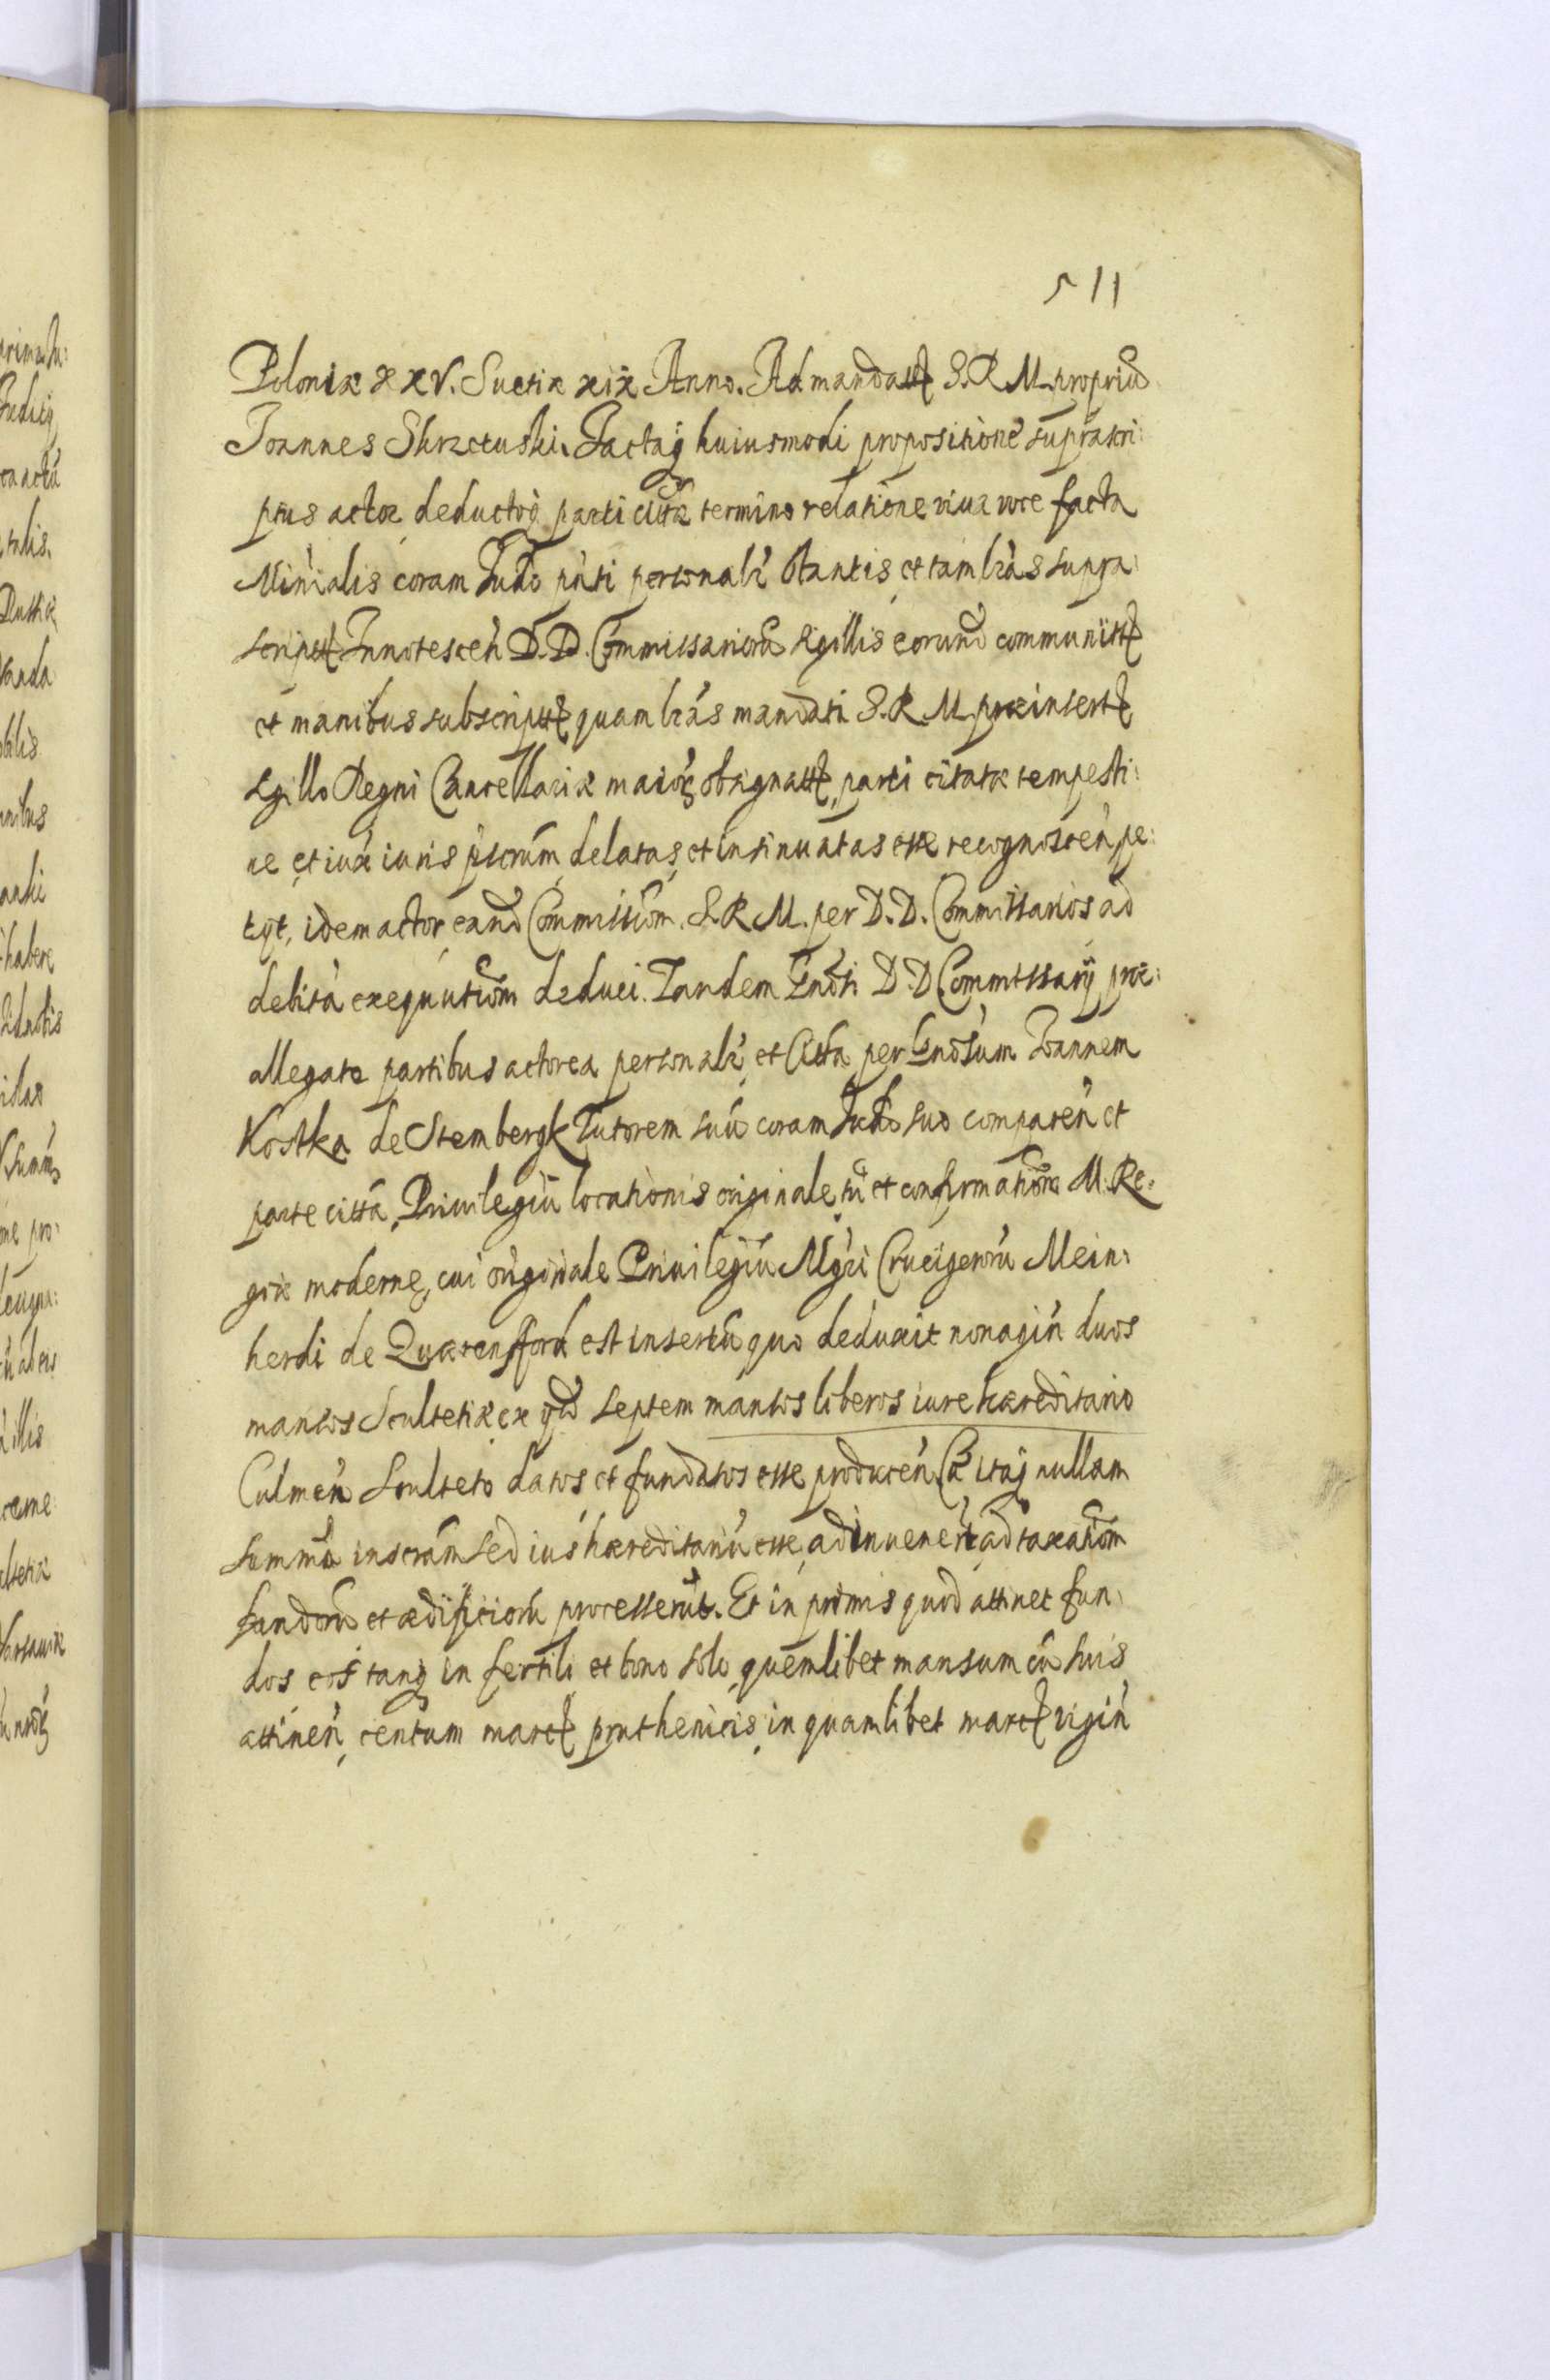 511
Poloniæ XXV. Suetiæ xix Anno. Ad mandatū S. R. M. propriū
Joannes Skrzetuski. Factaq̃ huiusmodi propositione suprascri:
ptus actor deductoq̃ parti cittæ termino relatione viuæ voce facta
Minr̃ialis coram Iudo pñti personalr̃ stantis, et tam lrãs supra
script Innotesceñ D. D. Commissariorũ sigillis eorund communitt
et manibus subscriptt quam lrãs mandati S. R. M. præinsert
sgillo Regni Cancellariæ maior obsignatt, parti citatæ tempesti:
ue et iux iuris pscrũm delatas, et insinuatas esse recognosceñ pe:
tyt, idem actor eand Commissiom̃ S. R. M. per D. D. Commissarios ad
debitã exequutiom̃ deduci. Tandem Gñdi D. D Commissarij præ:
allegatæ partibus actorea personalr̃, et Citta per Gñdsum Joannem
Kostka de Stembergk Tutorem suũ coram Iudo suo compareñ et
parte cittã, Priuilegiũ locationis originale, tũ et confirmatiom̃ M. Re:
giæ modernę, cui originale Priuilegiũ Mgr̃i Crucigerorũ Mein:
herdi de Querensford est insertũ quo deduxit nonagiñ duos
mansos Scultetiæ, ex qd septem mansos liberos iure hæreditario
Culmeñ Sculteto datos et fundatos esse produceñ Cõ itaq̃ nullam
summã inscrãm sed ius hæreditariũ esse, adinueneřt, ad taxatiom̃
fundorũ et ædificiorũ processerũt. Et in primis quod attinet fun:
dos eos tanq̃ in fertili et bono solo, quemlibet mansum cũ suis
attineñ, centum marc pruthenicis, in quamlibet marc vigiñ